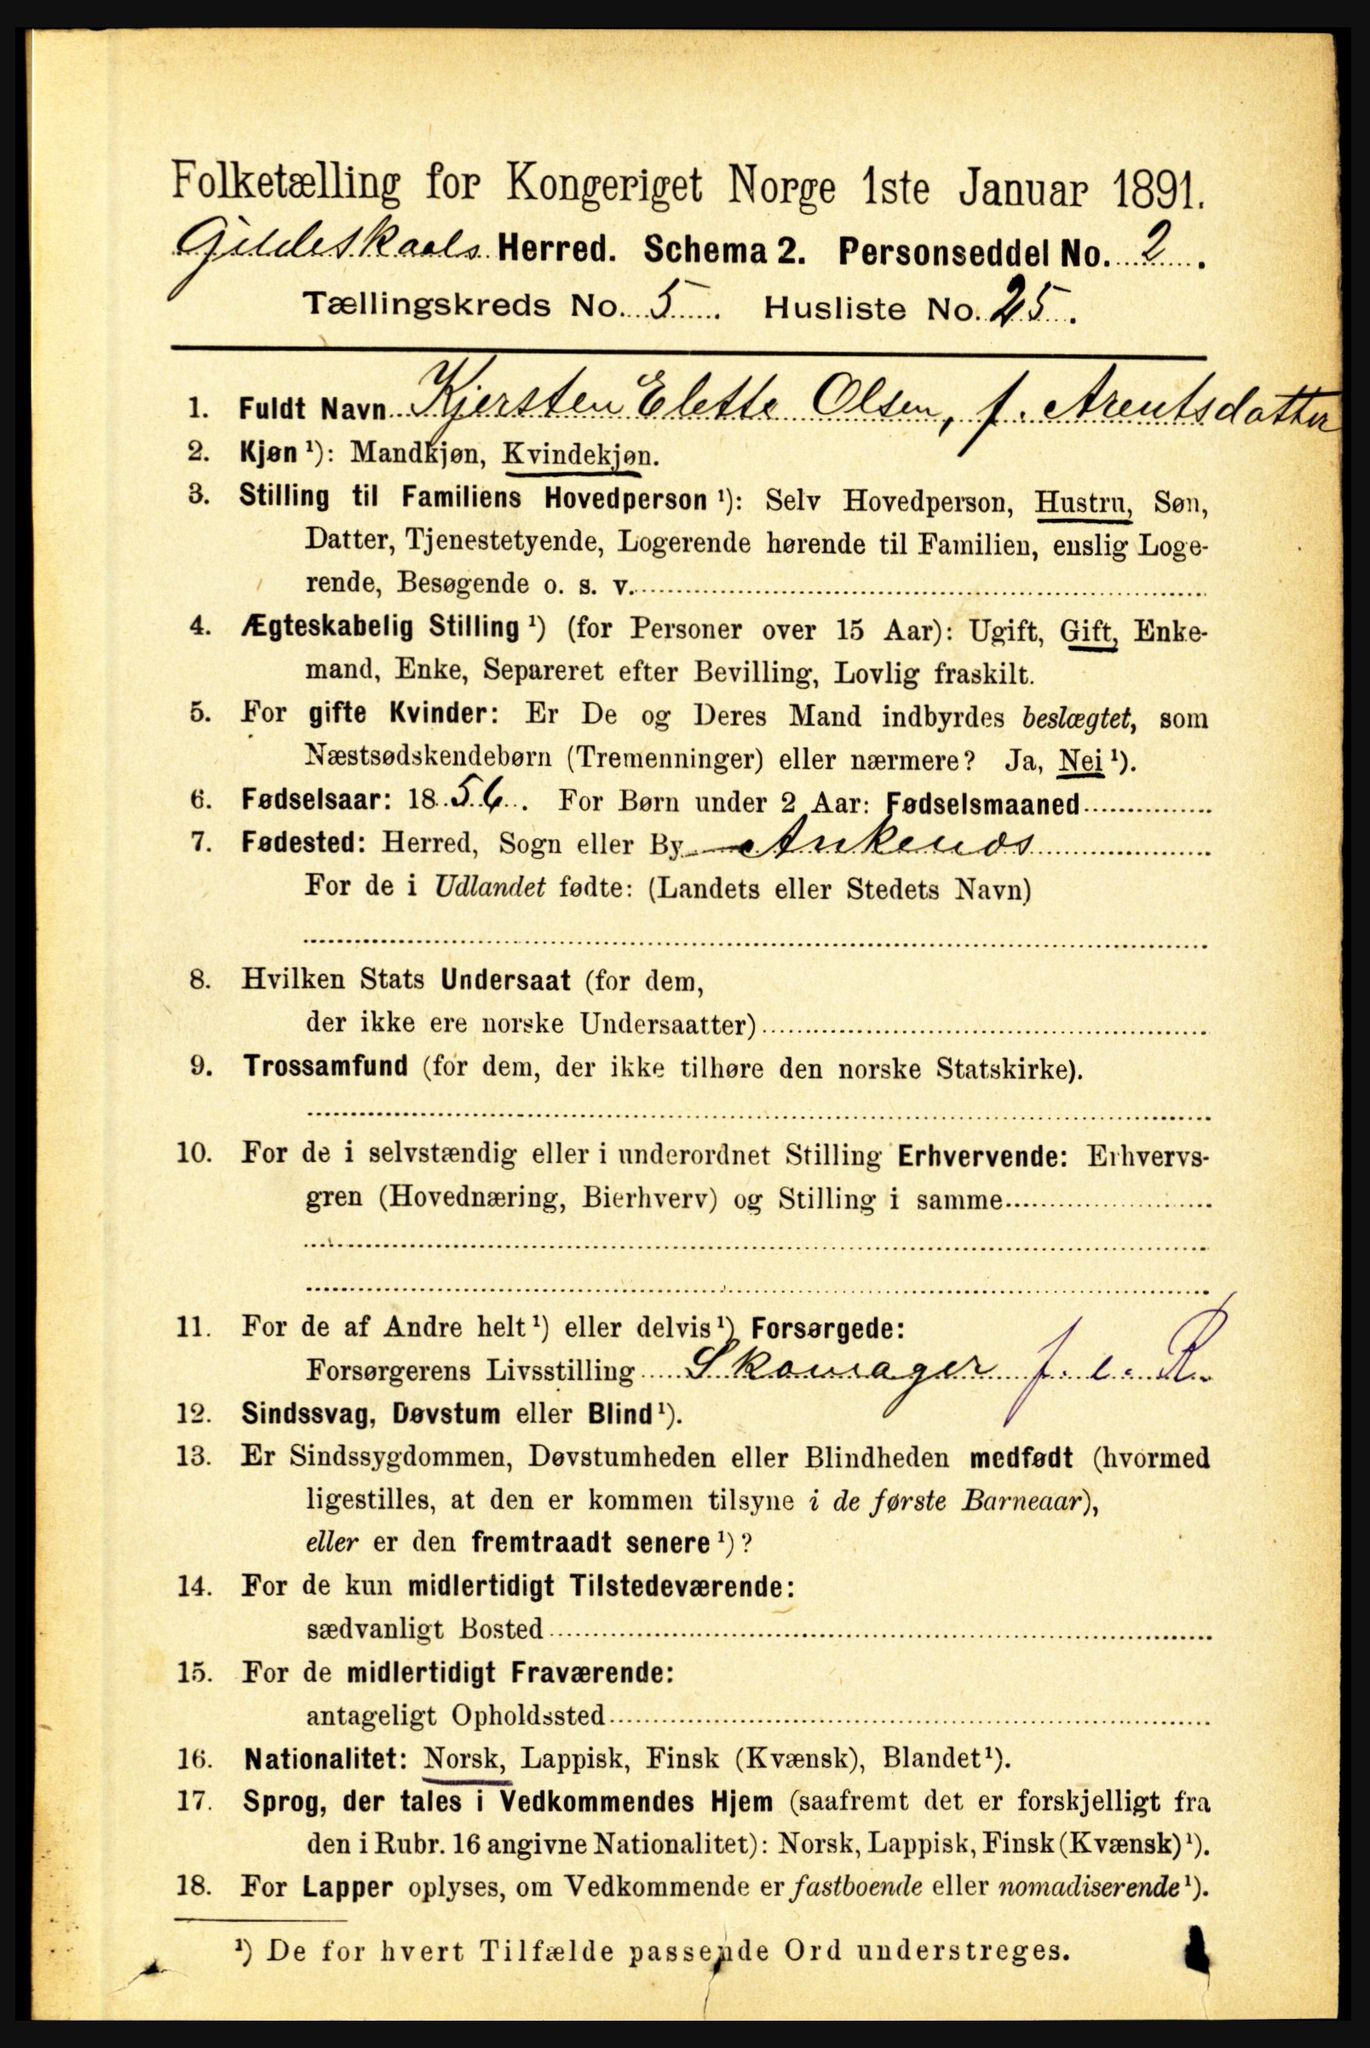 Folketælling for Kongeriget Norge 1ste Januar 1891.
Gildeskaals Herred. Schema 2. Personseddel No. 2.
Tællingskreds No. 5. Husliste No. 25.
1. Fuldt Navn Kjersten Elette Olsen, f. Arentsdatter
2. Kjøn ¹): Mandkjøn, Kvindekjøn.
3. Stilling til Familiens Hovedperson ¹): Selv Hovedperson, Hustru, Søn,
Datter, Tjenestetyende, Logerende hørende til Familien, enslig Loge-
rende, Besøgende o. s. v.
4. Ægteskabelig Stilling ¹) (for Personer over 15 Aar): Ugift, Gift, Enke-
mand, Enke, Separeret efter Bevilling, Lovlig fraskilt.
5. For gifte Kvinder: Er De og Deres Mand indbyrdes beslægtet, som
Næstsødskendebørn (Tremenninger) eller nærmere? Ja, Nei ¹).
6. Fødselsaar: 1856. For Børn under 2 Aar: Fødselsmaaned
7. Fødested: Herred, Sogn eller By Ankenæs
For de i Udlandet fødte: (Landets eller Stedets Navn)
8. Hvilken Stats Undersaat (for dem,
der ikke ere norske Undersaatter)
9. Trossamfund (for dem, der ikke tilhøre den norske Statskirke).
10. For de i selvstændig eller i underordnet Stilling Erhvervende: Erhvervs-
gren (Hovednæring, Bierhverv) og Stilling i samme
11. For de af Andre helt ¹) eller delvis ¹) Forsørgede:
Forsørgerens Livsstilling Skomager f. e. R.
12. Sindssvag, Døvstum eller Blind ¹).
13. Er Sindssygdommen, Døvstumheden eller Blindheden medfødt (hvormed
ligestilles, at den er kommen tilsyne i de første Barneaar),
eller er den fremtraadt senere ¹)?
14. For de kun midlertidigt Tilstedeværende:
sædvanligt Bosted
15. For de midlertidigt Fraværende:
antageligt Opholdssted
16. Nationalitet: Norsk, Lappisk, Finsk (Kvænsk), Blandet ¹).
17. Sprog, der tales i Vedkommendes Hjem (saafremt det er forskjelligt fra
den i Rubr. 16 angivne Nationalitet): Norsk, Lappisk, Finsk (Kvænsk) ¹).
18. For Lapper oplyses, om Vedkommende er fastboende eller nomadiserende ¹).
¹) De for hvert Tilfælde passende Ord understreges.